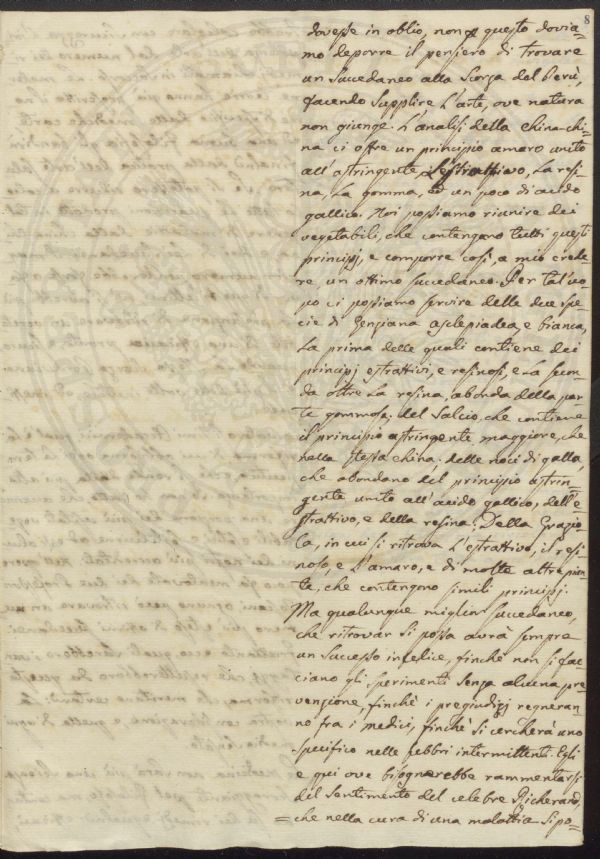 8
dovesse in oblio, non p questo dovia=
mo deporre il pensiero di trovare
un Succedaneo alla Scorza del Perù,
facendo Supplire l'arte, ove natura
non giunge. L'analisi della china-chi=
na ci offre un principio amaro unito
all'astringente, l'estrattivo, la resi=
na, la gomma, ed un poco di acido
gallico. Noi possiamo riunire dei
vegetabili, che contengono tutti questi
principj, e comporre così, a mio crede=
re, un ottimo Succedaneo. Per tal'uo=
po ci possiamo servire delle due spe=
cie di Genziana asclepiadea, e bianca,
la prima delle quali contiene dei
principj estrattivi, e resinosi, e la secon=
da oltre la resina, abonda della par=
te gommosa; del Salcio, che contiene
il principio astringente maggiore, che
nella stessa china. delle noci di galla,
che abondano del principio astrin=
gente unito all'acido gallico, dell'e=
strattivo, e della resina; Della Grazio=
la, in cui si ritrova l'estrattivo, il resi=
noso, e l'amaro, e di molte altre pian=
te, che contengono simili principj.
Ma qualunque miglior Succedaneo,
che ritrovar si possa avrà sempre
un Successo infelice, finchè non si fac=
ciano gli Sperimenti Senza alcuna pre=
venzione, finchè i pregiudizj regneran=
no fra i medici, finchè Si cercherà uno
Specifico nelle febbri intermittenti. Egli
è qui ove bisognerebbe rammentarsi
del Sentimento del celebre Richerand,
= che nella cura di una malattia Si po=